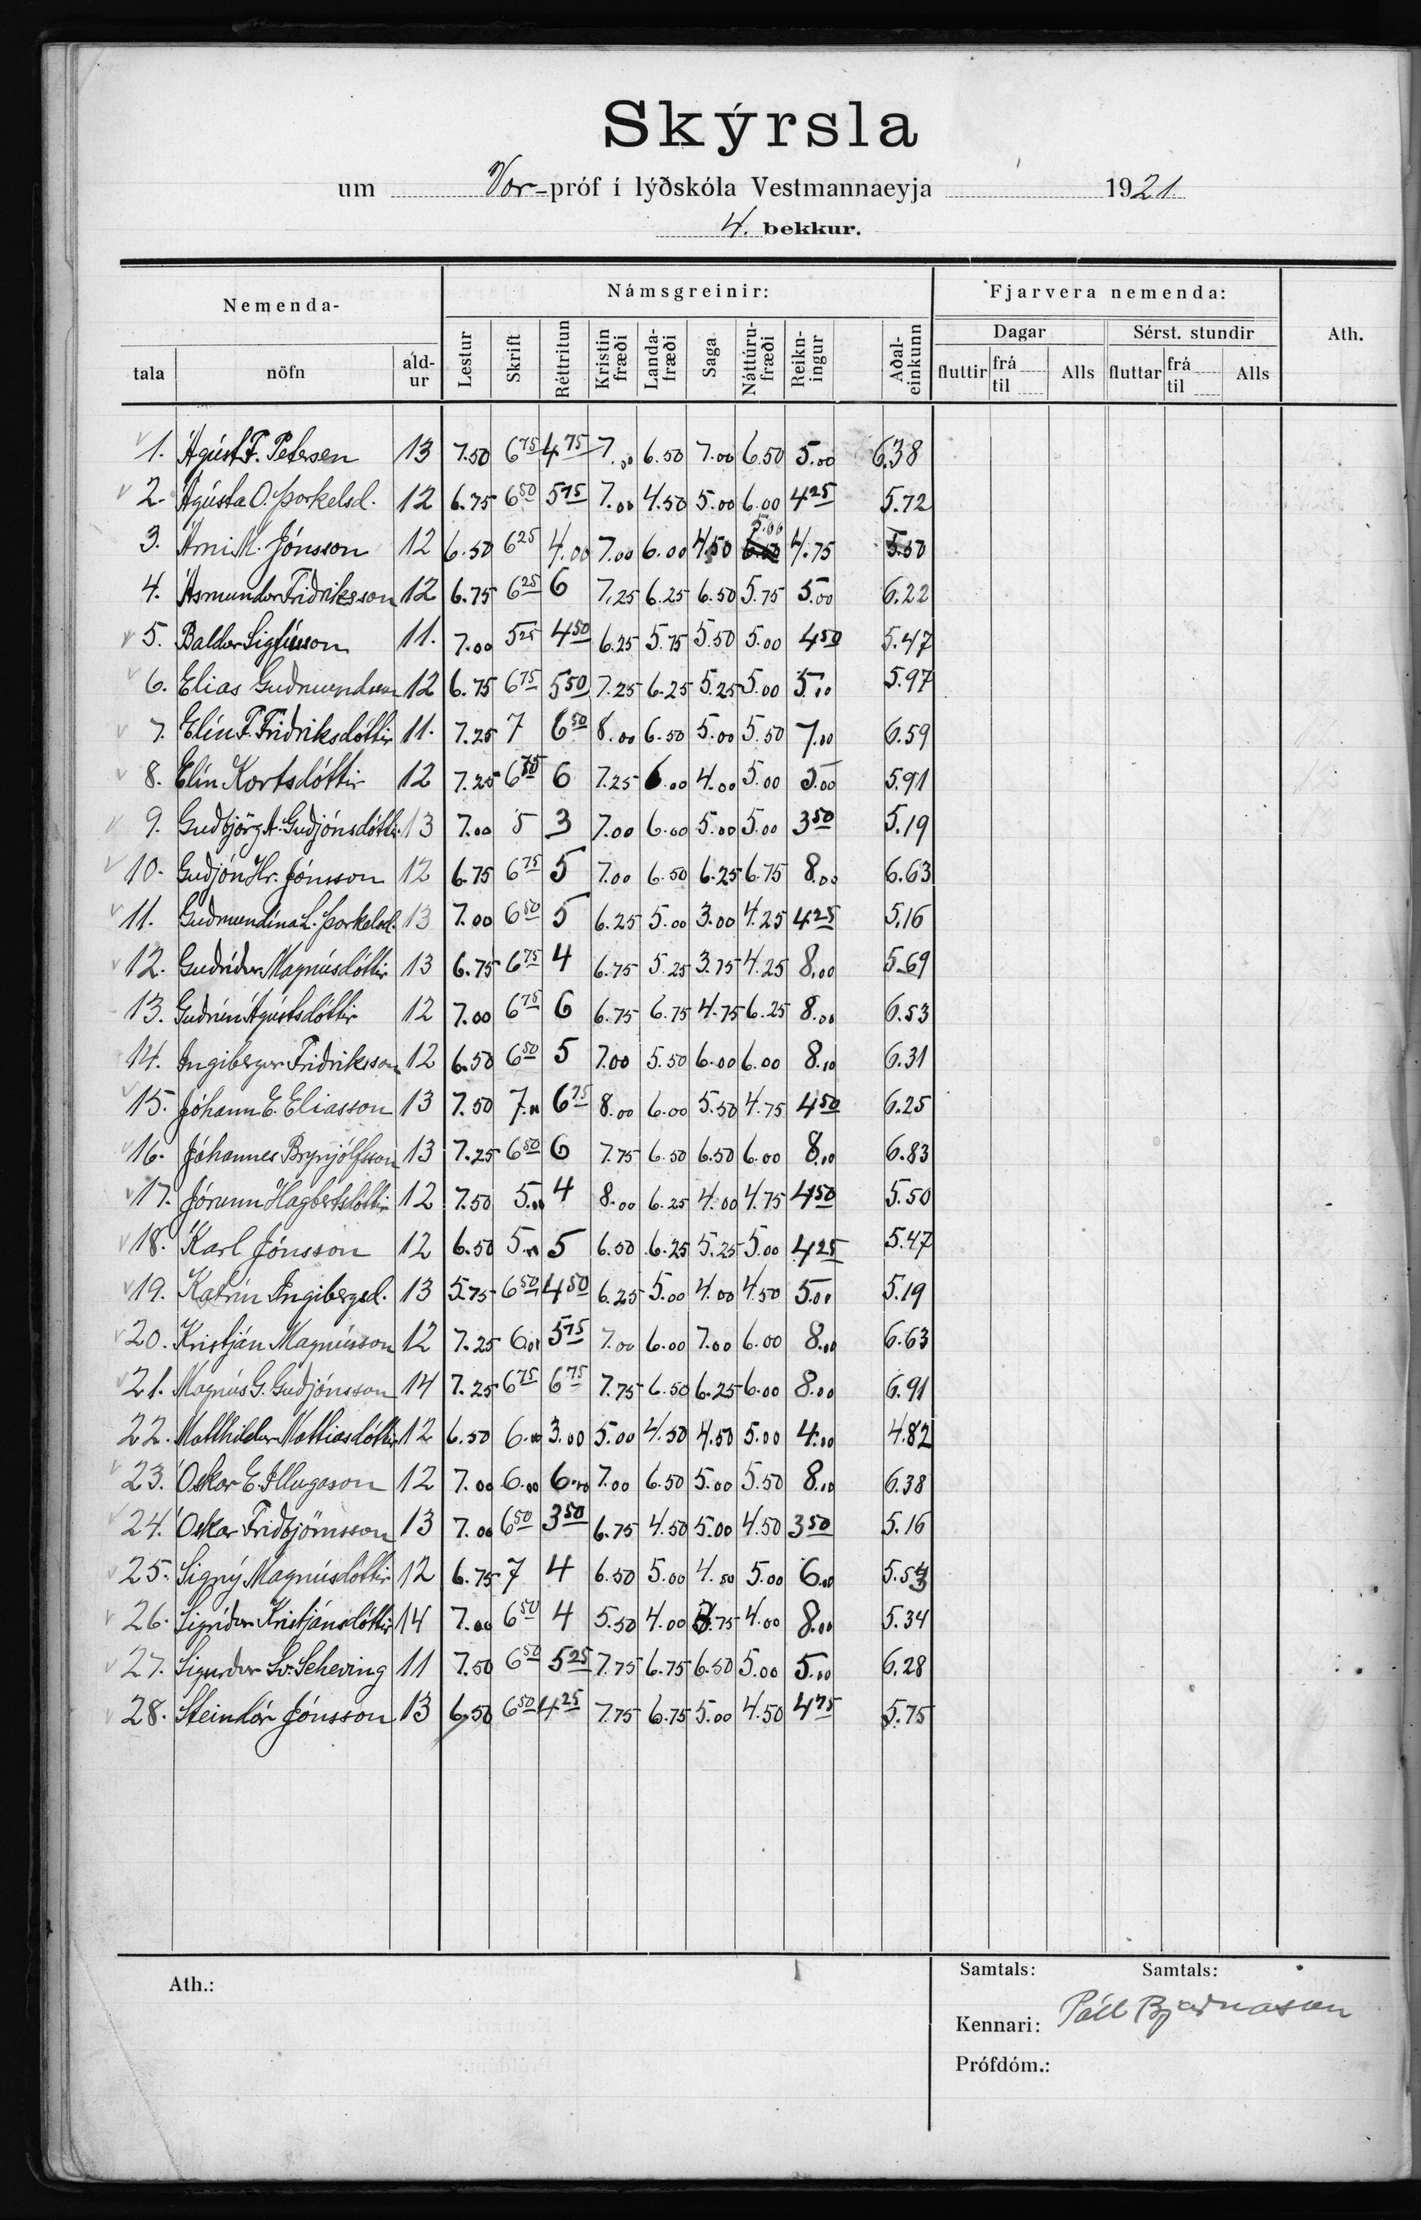 Skýrsla
um Vor-próf í lýðskóla Vestmannaeyja 1921
4. bekkur.
Nemenda- Námsgreinir: Fjarvera nemenda: Ath.
Dagar Sérst. stundir
tala nöfn ald-ur Lestur Skrift Réttritun Kristin fræði Landa-fræði Saga Náttúru-fræði Reikn-ingur Aðal-einkunn fluttir frá til Alls fluttar frá til Alls
1. Ágúst F. Petersen 13 7.50 6 75 4 75 7.00 6.50 7.00 6.50 5.00 6.38
2. Ágústa O. Þorkelsd. 12 6.75 6 50 5 75 7.00 4.50 5.00 6.00 4 25 5.72
3. Árni M. Jónsson 12 6.50 6 25 4.00 7.00 6.00 4.50 5.00 4.75 5.50
4. Ásmundur Friðriksson 12 6.75 6 25 6 7.25 6.25 6.50 5.75 5.00 6.22
5. Baldur Sigfússon 11. 7.00 5 25 4 50 6.25 5.75 5.50 5.00 4 50 5.47
6. Elias Guðmundsson 12 6.75 6 75 5 50 7.25 6.25 5.25 5.00 5.00 5.97
7. Elín F. Friðriksdóttir 11. 7.25 7 6 50 8.00 6.50 5.00 5.50 7.00 6.59
8. Elín Kortsdóttir 12 7.25 6 6 7.25 6.00 4.00 5.00 5.00 5.91
9. Guðbjörg A. Guðjónsdóttir 13 7.00 5 3 7.00 6.00 5.00 5.00 3 50 5.19
10. Guðjón Hr. Jónsson 12 6.75 6 75 5 7.00 6.50 6.25 6.75 8.00 6.63
11. Guðmundína L. Þorkelsd. 13 7.00 6 50 5 6.25 5.00 3.00 4.25 4 25 5.16
12. Guðríður Magnúsdóttir 13 6.75 6 75 4 6.75 5.25 3.75 4.25 8.00 5.69
13. Guðrún Ágústsdóttir 12 7.00 6 75 6 6.75 6.75 4.75 6.25 8.00 6.53
14. Ingibergur Friðriksson 12 6.50 6 50 5 7.00 5.50 6.00 6.00 8.00 6.31
15. Jóhann E. Eliasson 13 7.50 7.00 6 75 8.00 6.00 5.50 4.75 4 50 6.25
16. Jóhannes Brynjólfsson 13 7.25 6 50 6 7.75 6.50 6.50 6.00 8.00 6.83
17. Jórunn Hagbertsdóttir 12 7.50 5.00 4 8.00 6.25 4.00 4.75 4 50 5.50
18. Karl Jónsson 12 6.50 5.00 5 6.50 6.25 5.25 5.00 4 25 5.47
19. Katrín Ingibergsd. 13 5.75 6 50 4 50 6.25 5.00 4.00 4.50 5.00 5.19
20. Kristján Magnússon 12 7.25 6.00 5 75 7.00 6.00 7.00 6.00 8.00 6.63
21. Magnús G. Guðjónsson 14 7.25 6 75 6 75 7.75 6.50 6.25 6.00 8.00 6.91
22. Matthildur Mattíasdóttir 12 6.50 6.00 3.00 5.00 4.50 4.50 5.00 4.00 4.82
23. Óskar E. Illugason 12 7.00 6.00 6.00 7.00 6.50 5.00 5.50 8.00 6.38
24. Óskar Friðbjörnsson 13 7.00 6 50 3 50 6.75 4.50 5.00 4.50 3 50 5.16
25. Signý Magnúsdóttir 12 6.75 7 4 6.50 5.00 4.50 5.00 6.00 5.53
26. Sigríður Kristjánsdóttir 14 7.00 6 50 4 5.50 4.00 4.00 8.00 5.34
27. Sigurður Sv. Scheving 11 7.50 6 50 5 25 7.75 6.75 6.50 5.00 5.00 6.28
28. Steindór Jónsson 13 6.50 6 50 4 25 7.75 6.75 5.00 4.50 4 75 5.75
Ath.: Samtals: Samtals:
Kennari: Páll Bjarnason
Prófdóm.: